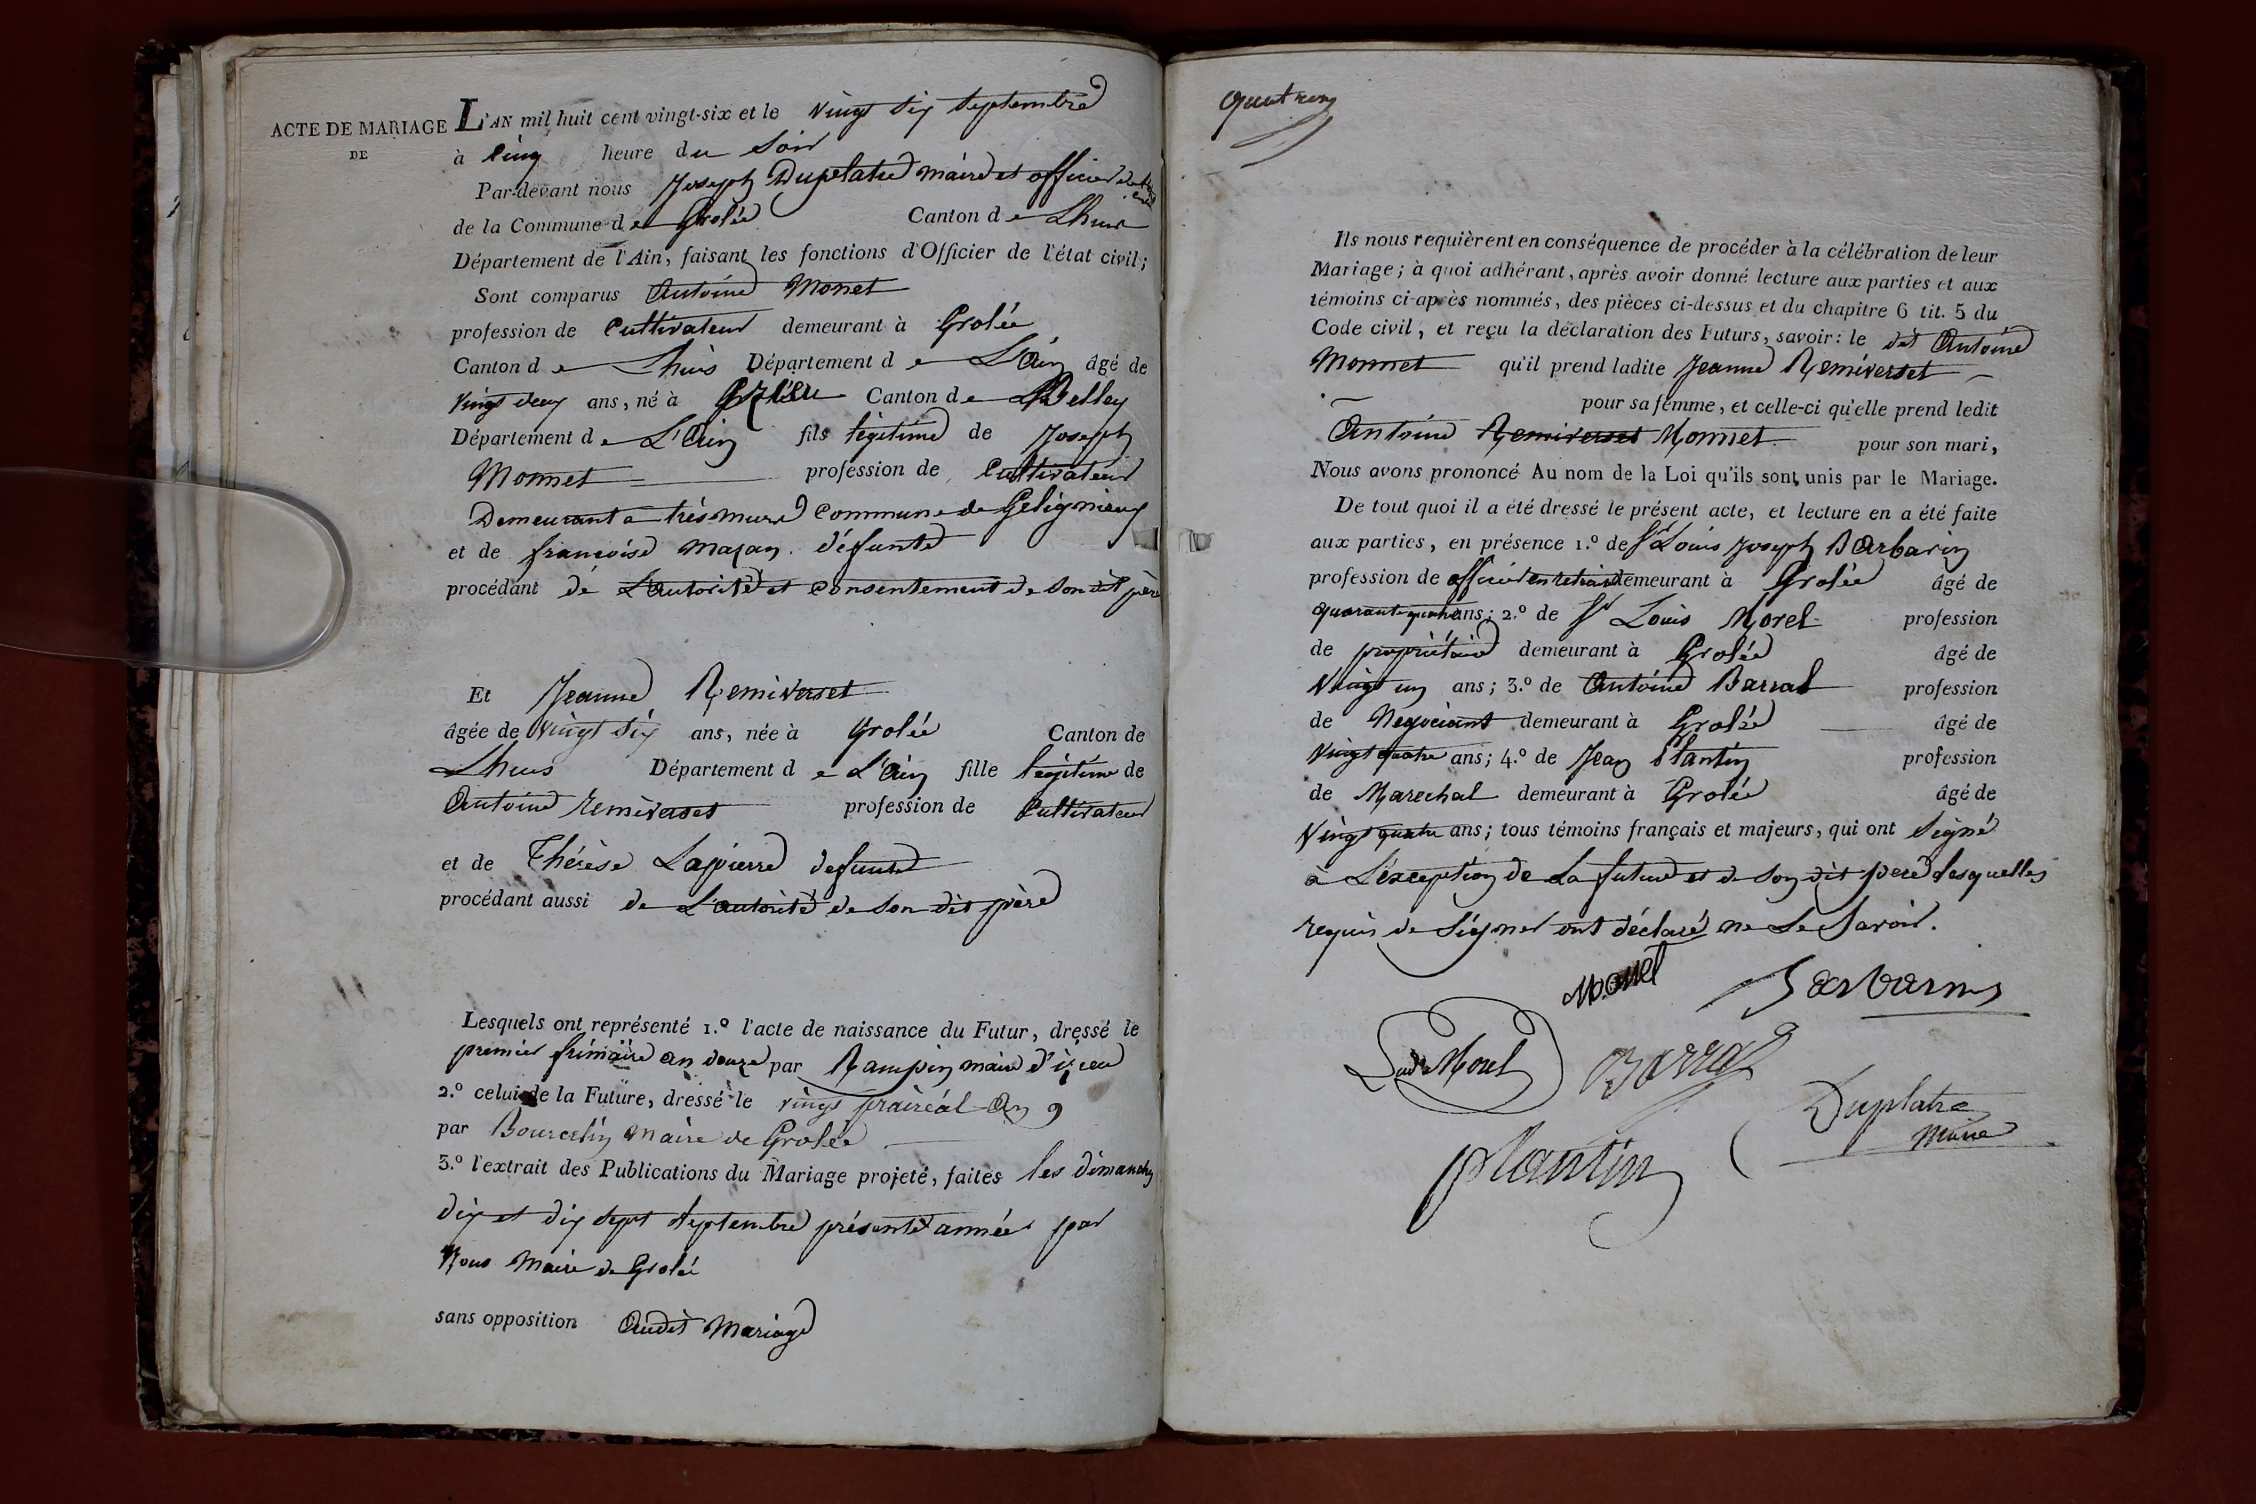 ACTE DE MARIAGE
DE
L'AN mil huit cent vingt-six et le vingt six septembre
à cinq heure du soir
Par-devant nous Joseph Duplatre maire et officier
de la Commune de Grolée Canton de Lhuis
Département de l'Ain, faisant les fonctions d'Officier de l'état civil;
Sont comparus Antoine Monet
profession de Cultivateur demeurant à Grolée
Canton de Lhuis Département de L'Ain âgé de
vingt deux ans, né à Canton de Belley
Département de L'Ain fils légitime de Joseph
Monnet profession de Cultivateur
Demeurant a commune de Gelignieux
et de françoise défunte
procédant de L'autorité et consentement de son dit père
Et Jeanne Remiverset
âgée de vingt six ans, née à Grolée Canton de
Lhuis Département de L'Ain fille légitime de
Antoine remiverset profession de Cultivateur
et de Thérèse Lapierre defunte
procédant aussi de L'autorité de son dit père
Lesquels ont représenté 1.º l'acte de naissance du Futur, dressé le
premier frimaire an douze par Rampin maire d'izieu
2.º celui de la Future, dressé le vingt prairéal An 9
par maire de Grolée
3.º l'extrait des Publications du Mariage projeté, faites les dimanche
dix et dix sept septembre présente année par
Nous Maire de Grolée
sans opposition Audit Mariage
Ils nous requièrent en conséquence de procéder à la célébration de leur
Mariage; à quoi adhérant, après avoir donné lecture aux parties et aux
témoins ci-après nommés, des pièces ci-dessus et du chapitre 6 tit. 5 du
Code civil, et reçu la déclaration des Futurs, savoir: le dit Antoine
Monnet qu'il prend ladite Jeanne Remiverset
pour sa femme, et celle-ci qu'elle prend ledit
Antoine Remiverset Monnet pour son mari,
Nous avons prononcé Au nom de la Loi qu'ils sont unis par le Mariage.
De tout quoi il a été dressé le présent acte, et lecture en a été faite
aux parties, en présence 1.º de Sr Louis Joseph Barbarin
profession de officier en retraite demeurant à Grolée âgé de
quarante quatre ans; 2.º de Sr Louis Morel profession
de propriétaire demeurant à Grolée âgé de
vingt un ans; 3.º de Antoine Barral profession
de Negociant demeurant à Grolée âgé de
vingt quatre ans; 4.º de Jean Plantin profession
de Marechal demeurant à Grolée âgé de
vingt quatre ans; tous témoins français et majeurs, qui ont signé
à L'exception de La future et de son dit père lesquelles
requis de signer ont déclaré ne Le Savoir.
Monel Barbarin
Morel Barral
Duplatre
Maire
plantin